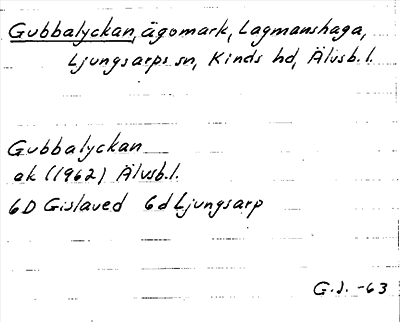 Gubbalyckan, ägomark, Lagmanshaga,
Ljungsarps sn, Kinds hd, Älvsb. l.
Gubbalyckan
ak (1962) Älvsb. l.
6D Gislaved 6d Ljungsarp
G.J. -63